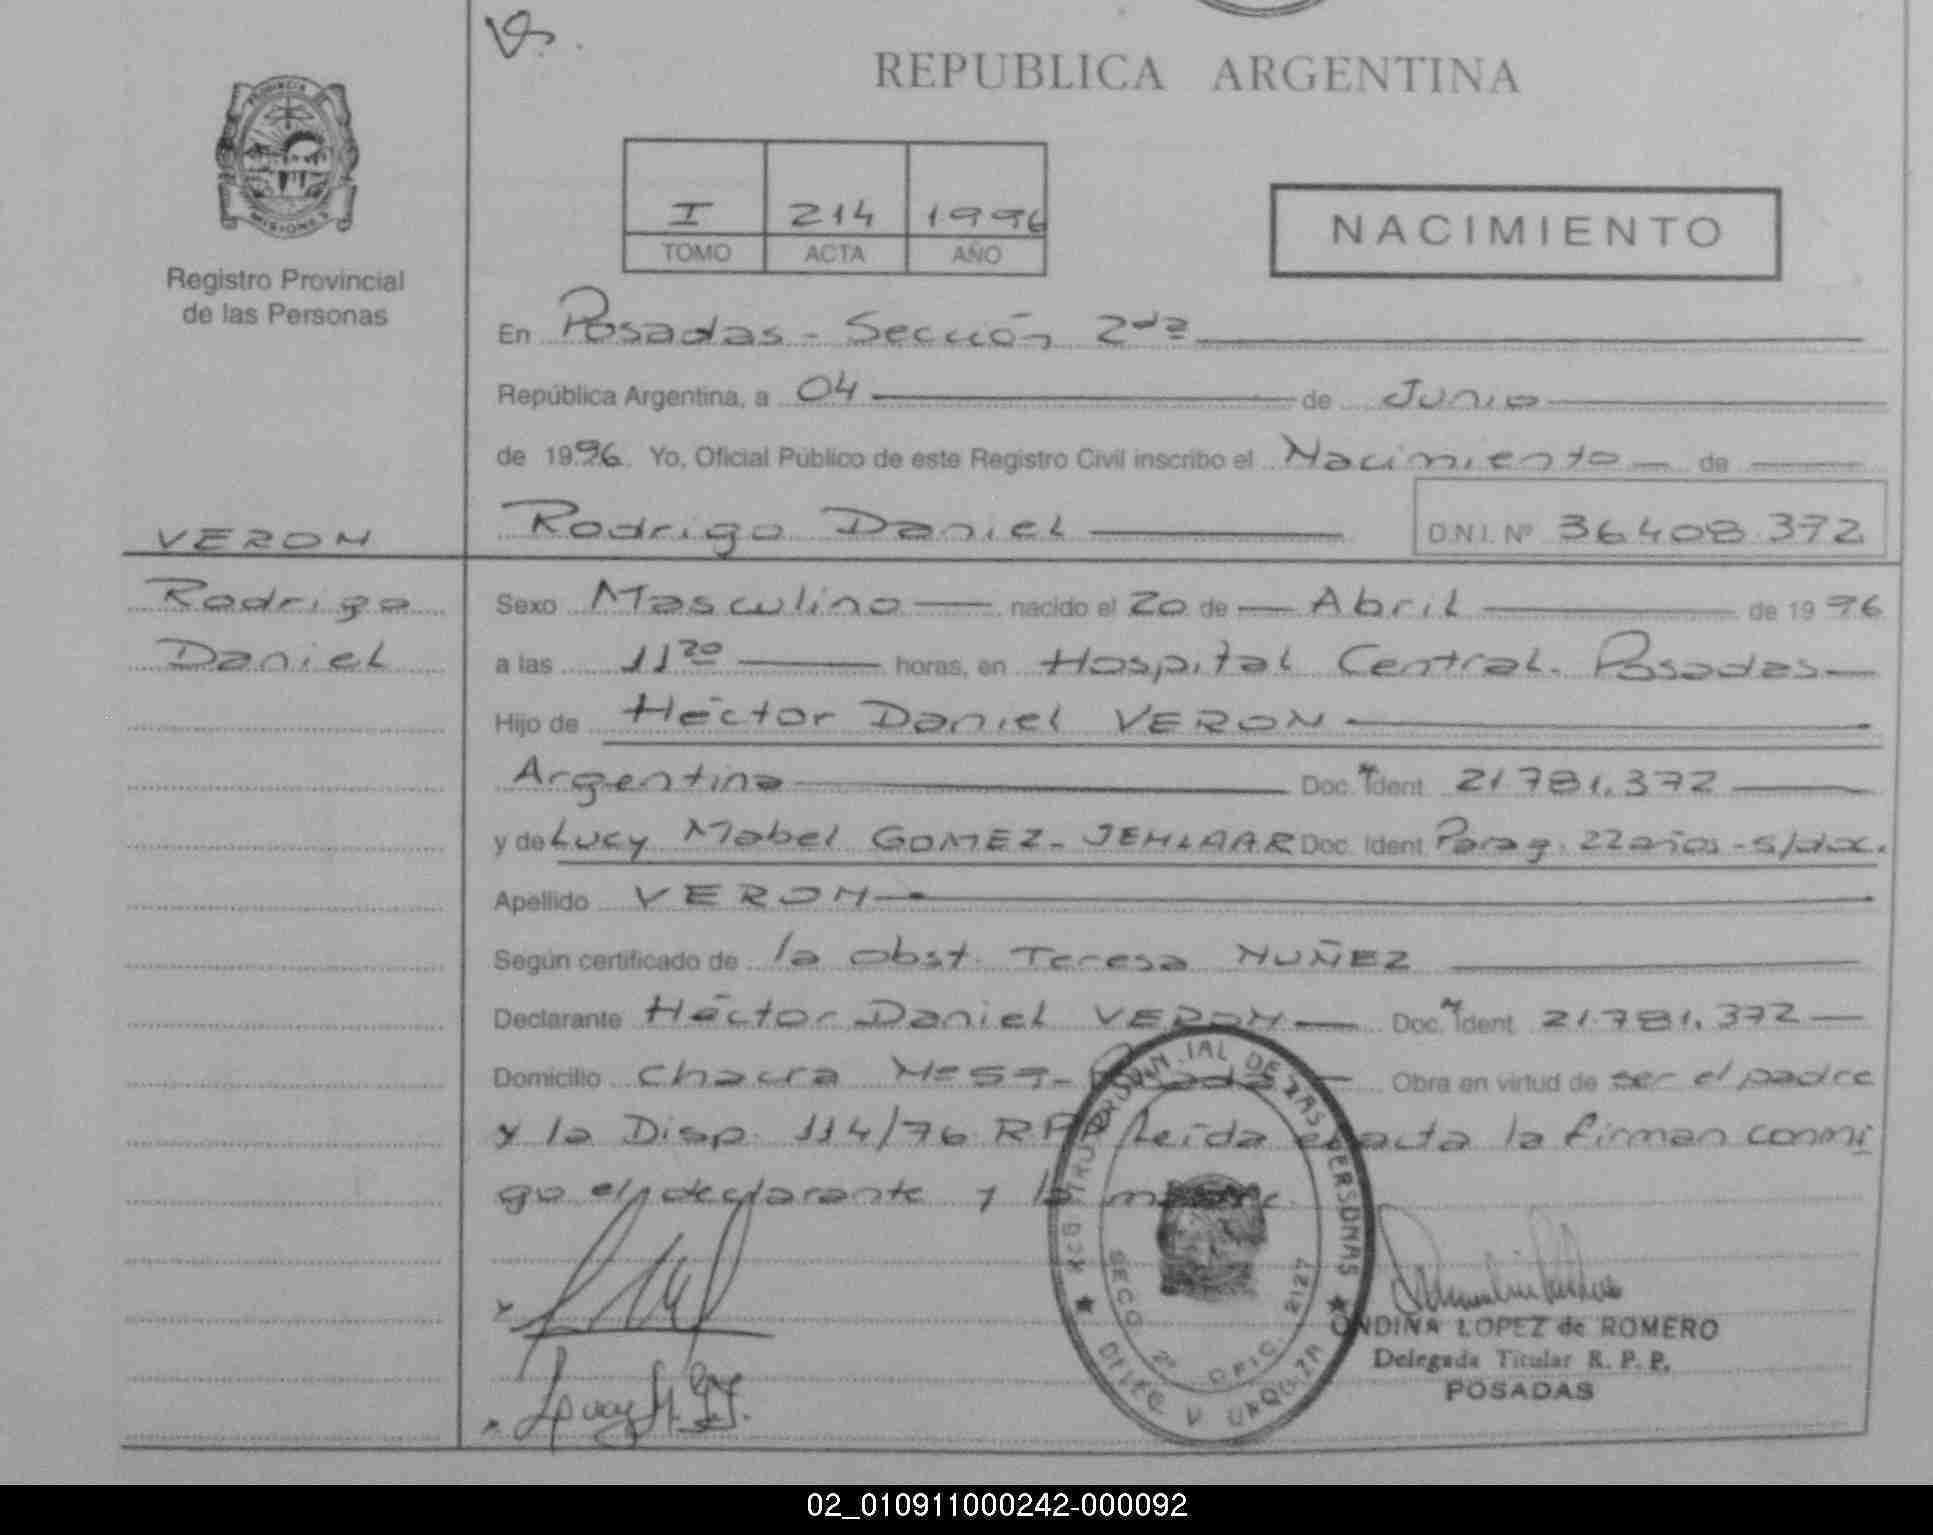 REPUBLICA ARGENTINA
PROVINCIA DE
MISIONES
Registro Provincial
de las Personas
I 214 1996
TOMO ACTA AÑO
NACIMIENTO
En Posadas - Sección 2da
República Argentina, a 04 de Junio
de 1996. Yo, Oficial Público de este Registro Civil inscribo el Nacimiento de
VERON
Rodrigo Daniel D.N.I. Nº 36408.372
Rodrigo
Daniel
Sexo Masculino nacido el 20 de Abril de 1996
a las 11 20 horas, en Hospital Central. Posadas
Hijo de Héctor Daniel VERON
Argentina Doc. Ident 21781.372
y de Lucy Mabel GOMEZ - Doc. Ident Parag. 22 años - s/doc.
Apellido VERON
Según certificado de la obst. Teresa NUÑEZ
Declarante Héctor Daniel VERON Doc. Ident 21.781.372
Domicilio Chacra Nº 59 - Posadas Obra en virtud de ser el padre
y la Disp. 114/76 R.P.P. Leída el acta la firman conmi
go el declarante y la madre.
REGISTRO PROVINCIAL DE LAS PERSONAS
SECC. 2ª OFIC. 2127
URQUIZA
ONDINA LOPEZ de ROMERO
Delegada Titular R. P. P.
POSADAS
02_010911000242-000092